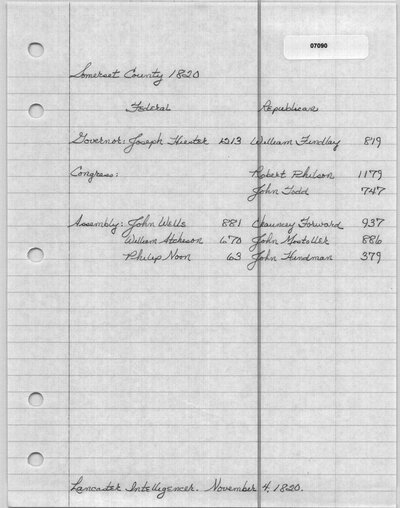 07090
Somerset County 1820
Federal Republican
Governor: Joseph Hiester 1213 William Findlay 879
Congress: Robert Philson 1179
John Todd 747
Assembly: John Wells 881 Chauncey Forward 937
William Atcheson 670 John Mostoller 886
Philip Noon 63 John Hindman 379
Lancaster Intelligencer. November 4, 1820.